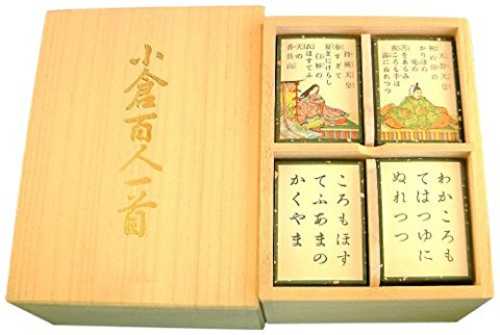 小倉百人一首
持統天皇
春すぎて
夏きにけらし
白妙の
衣ほすてふ
天の
香具山
天智天皇
秋の田の
かりほの
庵の
苫をあらみ
わが
ころも手は
露にぬれつつ
ころもほす
てふあまの
かくやま
わかころも
てはつゆに
ぬれつつ